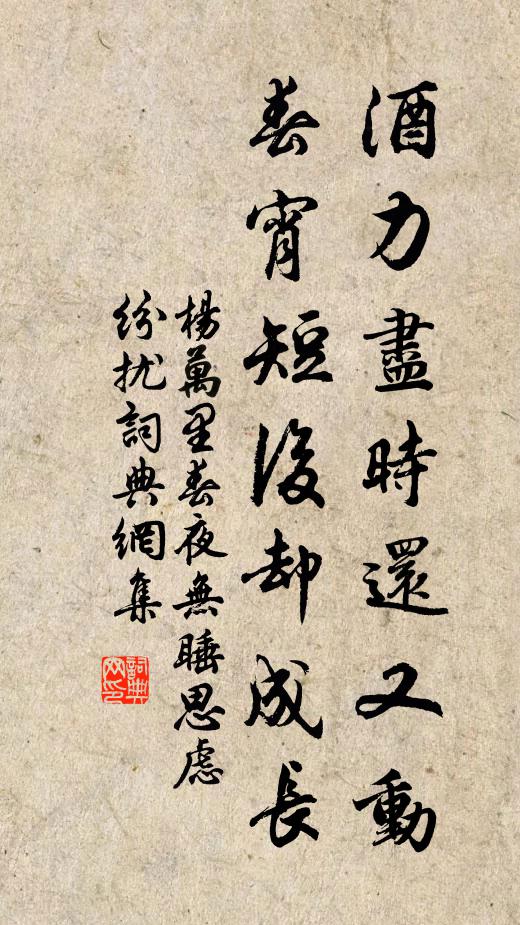 酒力盡時還又動
春宵短後却成長
楊萬里春夜無睡思慮
紛扰詞典網集
詞典網印